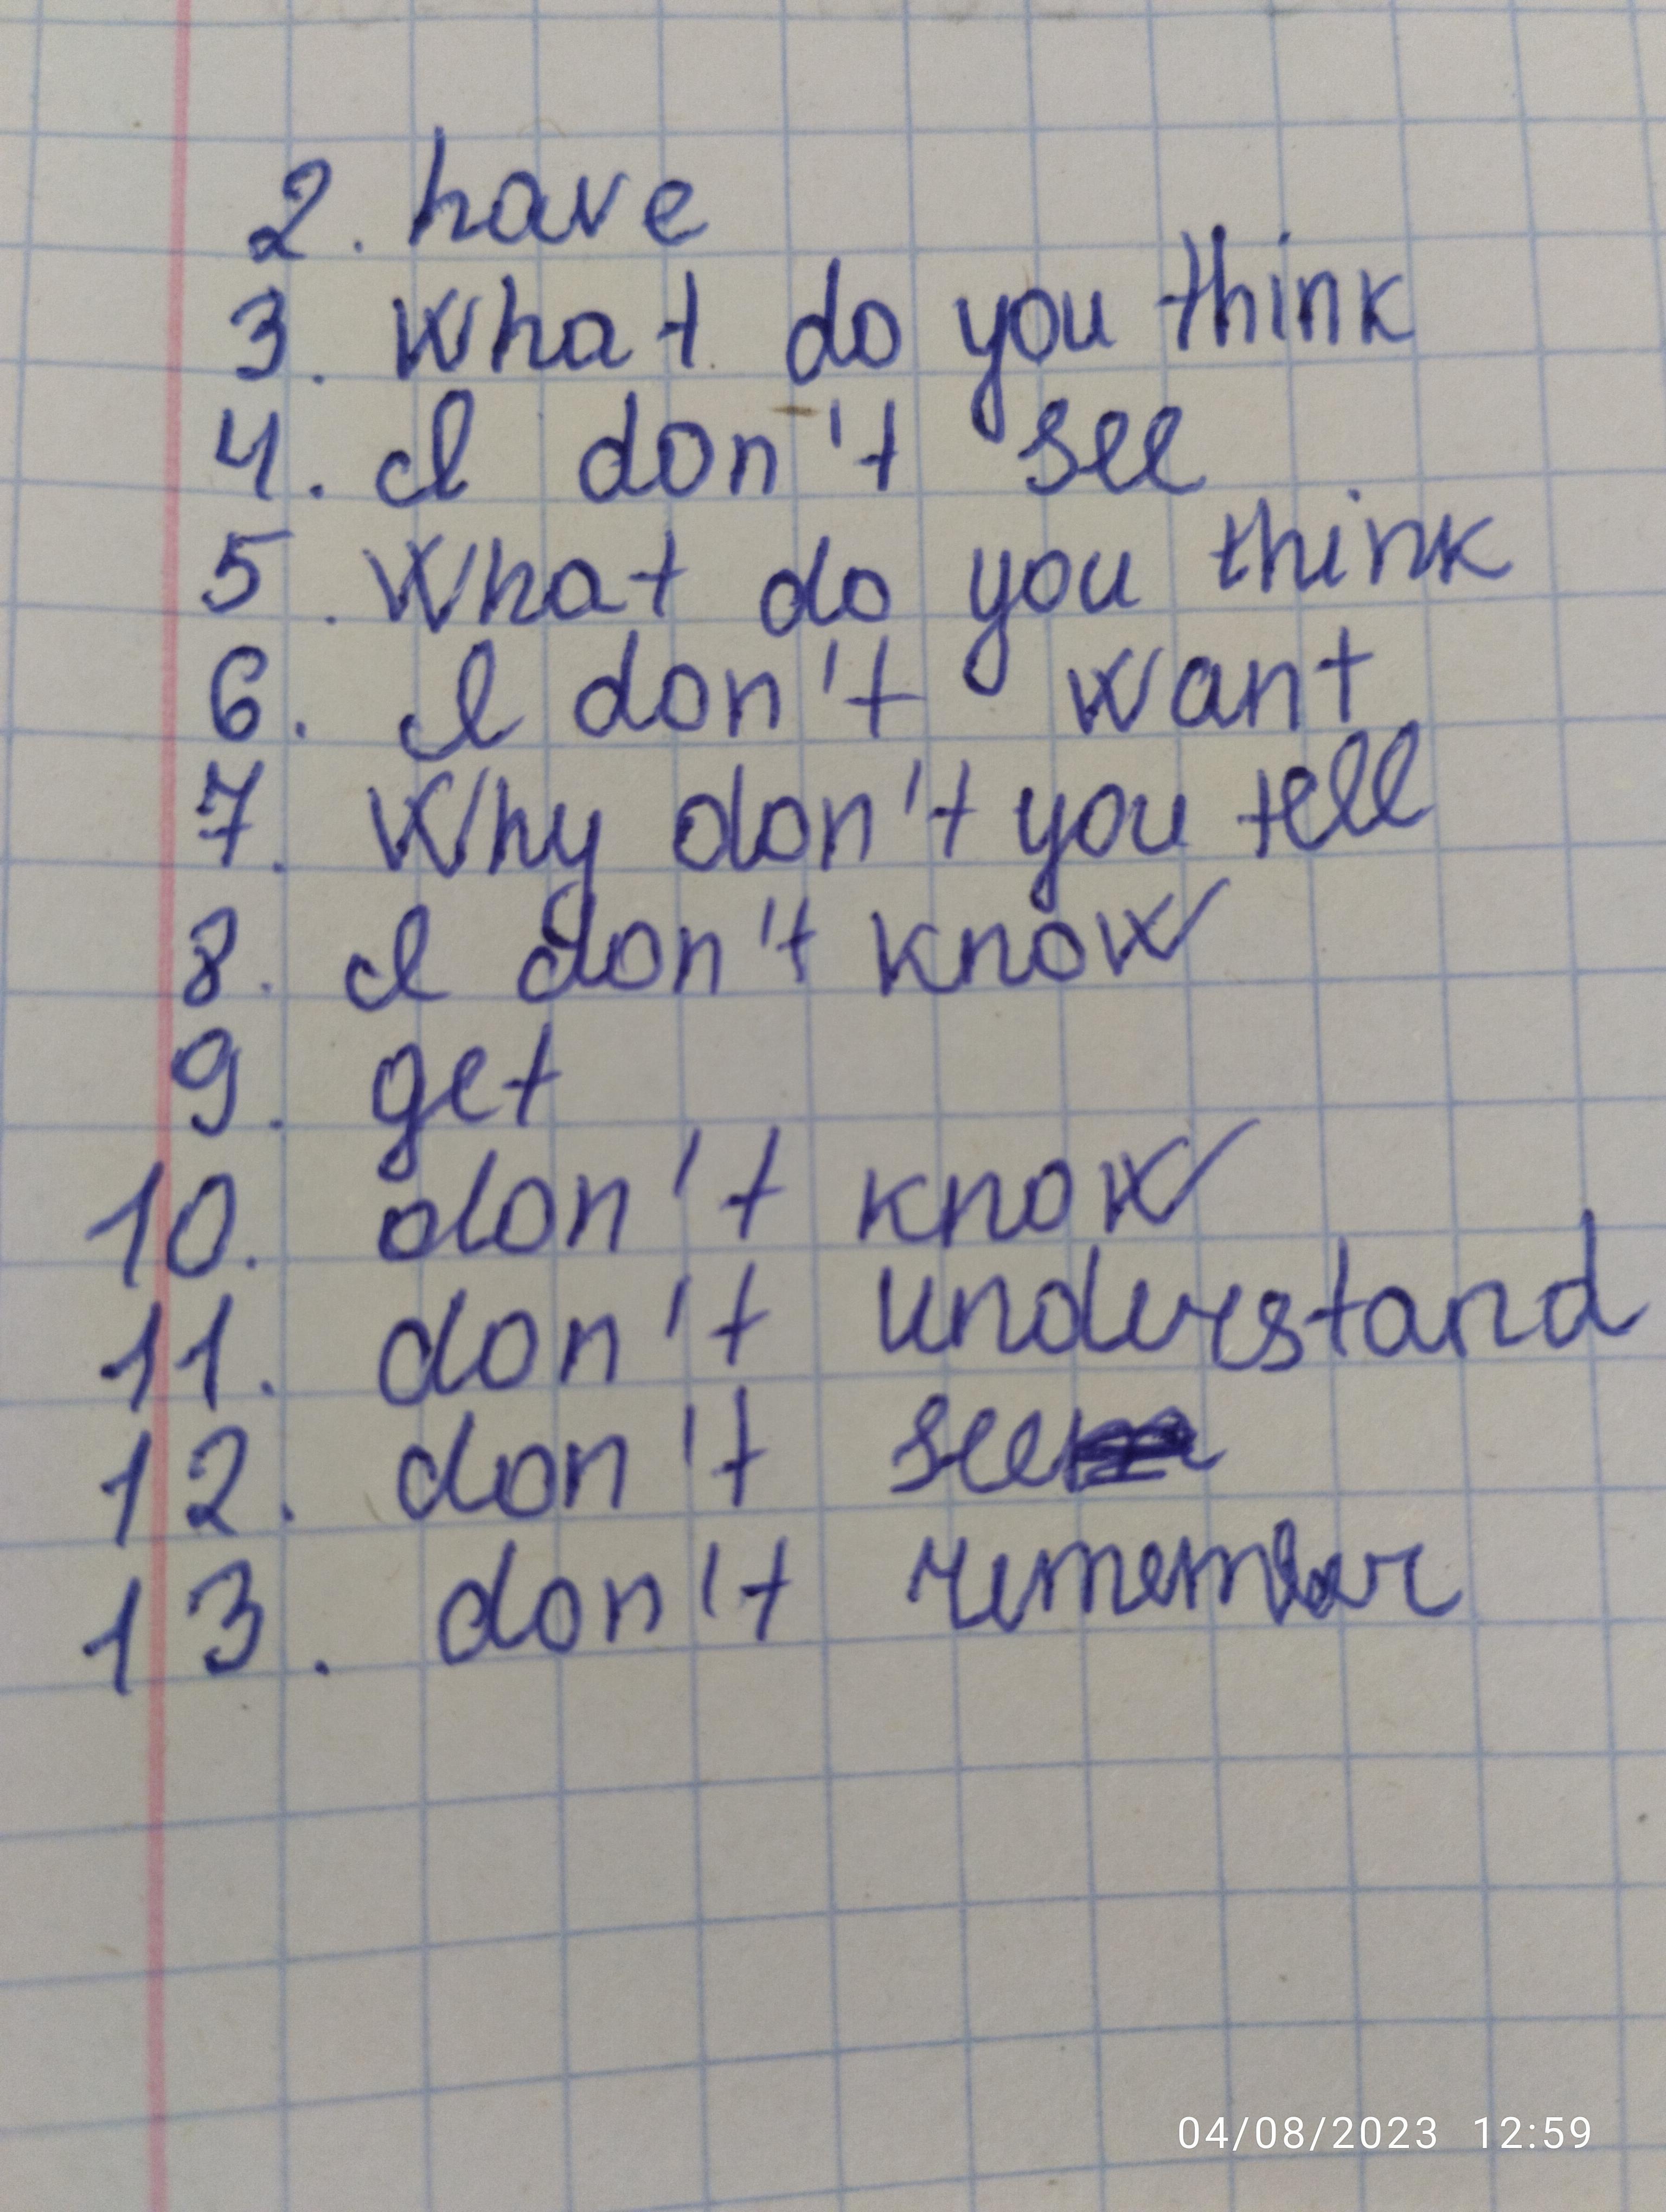 2. have
3. What do you think
4. I don't see
5. What do you think
6. I don't want
7. Why don't you tell
8. I don't know
9. get
10. don't know
11. don't understand
12. don't see
13. don't remember
04/08/2023 12:59